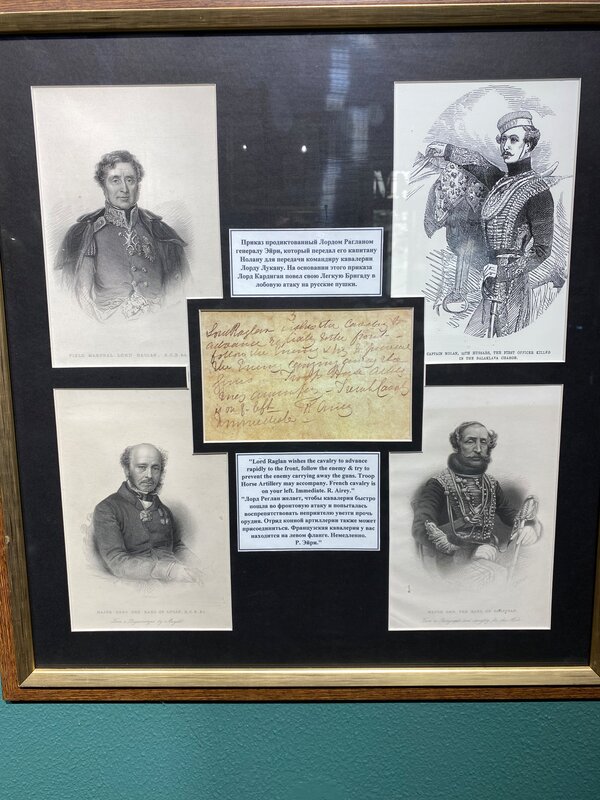 FIELD MARSHAL LORD RAGLAN, G.C.B. &c.
CAPTAIN NOLAN, 15TH HUSSARS, THE FIRST OFFICER KILLED
IN THE BALAKLAVA CHARGE.
Приказ продиктованный Лордом Рагланом
генералу Эйри, который передал его капитану
Нолану для передачи командиру кавалерии
Лорду Лукану. На основании этого приказа
Лорд Кардиган повел свою Легкую Бригаду в
лобовую атаку на русские пушки.
Lord Raglan wishes the cavalry to
advance rapidly to the front
follow the enemy & try to prevent
the enemy carrying away the
guns Troop Horse Artillery
may accompany French Cavalry
is on your left
Immediate R Airey
"Lord Raglan wishes the cavalry to advance
rapidly to the front, follow the enemy & try to
prevent the enemy carrying away the guns. Troop
Horse Artillery may accompany. French cavalry is
on your left. Immediate. R. Airey."
"Лорд Реглан желает, чтобы кавалерия быстро
пошла во фронтовую атаку и попыталась
воспрепятствовать неприятелю увезти прочь
орудия. Отряд конной артиллерии также может
присоединиться. Французская кавалерия у вас
находится на левом фланге. Немедленно.
Р. Эйри."
MAJOR GENL. THE EARL OF LUCAN, K.C.B. &c.
MAJOR GEN. THE EARL OF CARDIGAN.